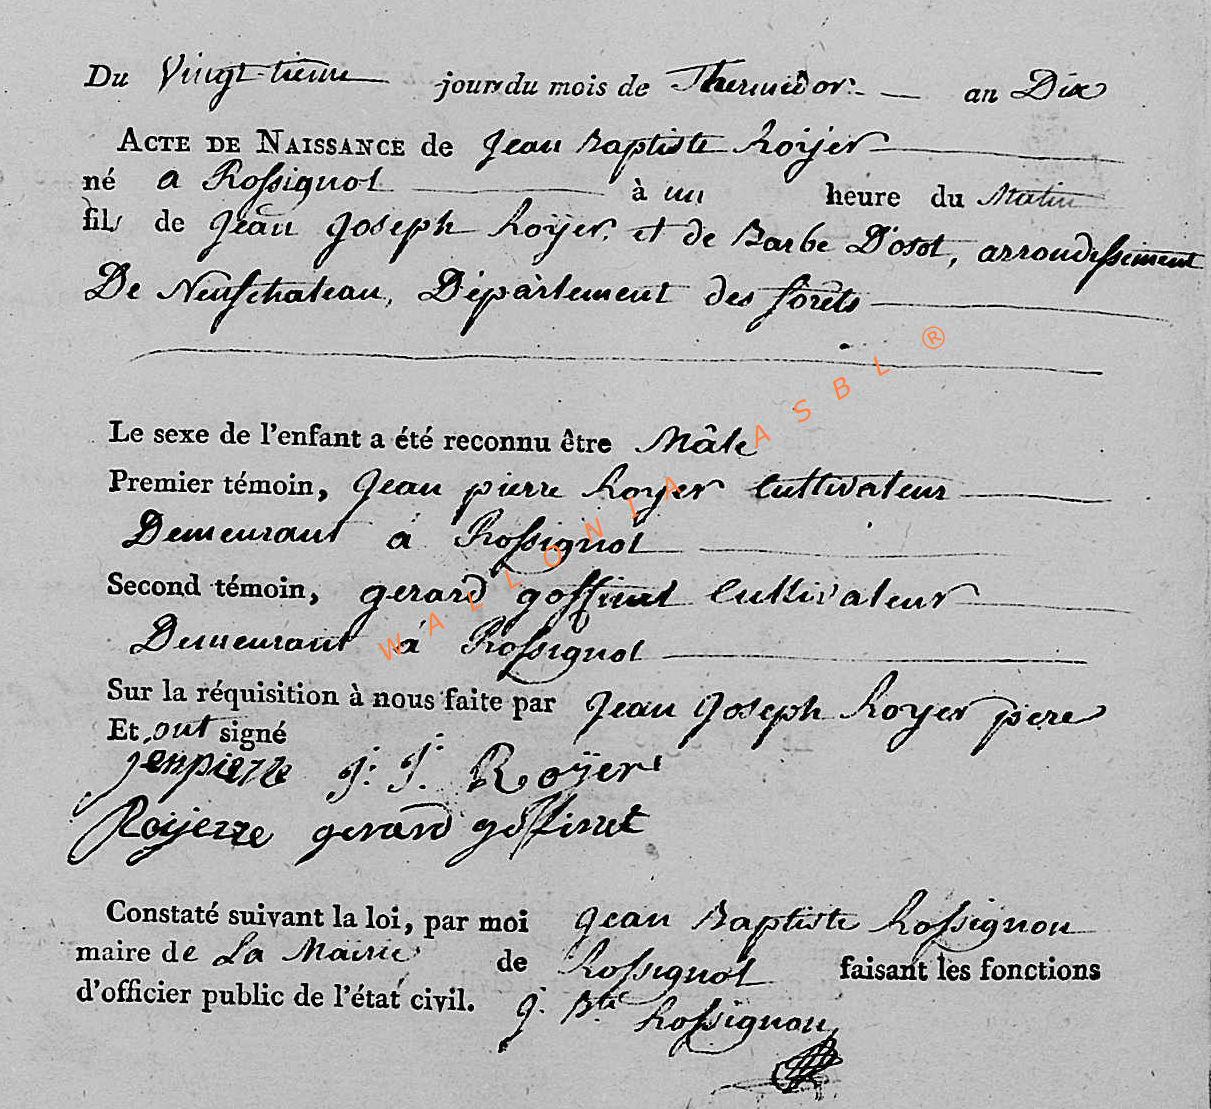 Du Vingt-tieme jour du mois de Thermidor. an Dix
ACTE DE NAISSANCE de Jean Baptiste Roÿer
né a Rossignol à un heure du Matin
fils de Jean Joseph Roÿer, et de Barbe D'osot, arrondissement
De Neufchateau, Département des forêts
Le sexe de l'enfant a été reconnu être Mâle
Premier témoin, Jean pierre Royer Cultivateur
Demeurant á Rossignol
Second témoin, gerard goffinet Cultivateur
Demeurant á Rossignol
Sur la réquisition à nous faite par Jean Joseph Royer pere
Et ont signé
jenpierre J: J: Roÿer
Roijerre gerard goffinet
Constaté suivant la loi, par moi Jean Baptiste Rossignon
maire de La Mairie de Rossignol faisant les fonctions
d'officier public de l'état civil. J. Bte Rossignon
WALLONIA ASBL ®